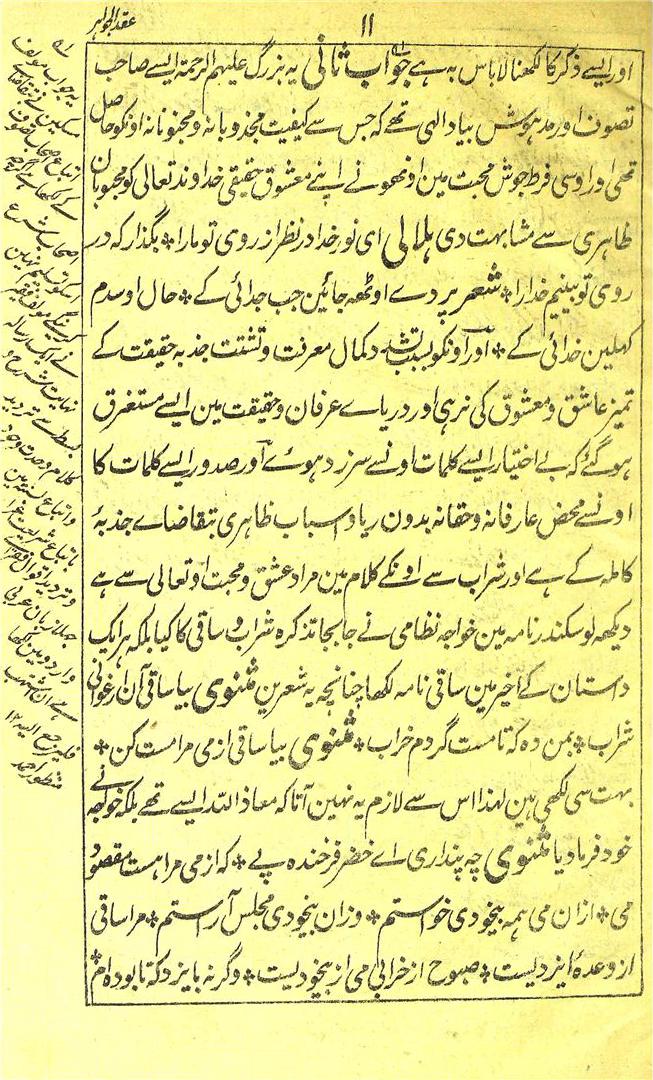 ۱۱
عقد الجواہر
اور ایسے ذکر کا لکھنا لا باس بہ ہے جواب ثانی یہ بزرگ علیہم الرحمۃ ایسے صاحب
تصوف اور مدہوش بیاد الٰہی تھے کہ جس سے کیفیت مجذوبانہ و مجنونانہ اونکو حاصل
تھی اور اوسی فرط جوش محبت مین اونھونے اپنے معشوق حقیقی خداوند تعالی کو محبوبان
ظاہری سے مشابہت دی ہلالی ای نور خدا در نظر از روی تو مارا ٭ بگذار کہ در
روی تو بینیم خدارا ٭ شعر پردے اوٹھہ جائین جب جدائی کے ٭ حال اوسدم
کہلین خدائی کے ٭ اور اونکو بسبب کمال معرفت و تشتت جذبہ حقیقت کے
تمیز عاشق و معشوق کی نرہی اور دریاے عرفان و حقیقت مین ایسے مستغرق
ہو گئے کہ بے اختیار ایسے کلمات اونسے سرزد ہوئے اور صدور ایسے کلمات کا
اونسے محض عارفانہ و حقانہ بدون ریا و اسباب ظاہری بتقاضاے جذبۂ
کاملہ کے ہے اور شراب سے اونکے کلام مین مراد عشق و محبت او تعالی سے ہے
دیکھہ لو سکندر نامہ مین خواجہ نظامی نے جابجا تذکرہ شراب و ساقی کا کیا بلکہ ہر ایک
داستان کے آخیر مین ساقی نامہ لکھا چنانچہ یہ شعرین مثنوی بیا ساقی آن ارغوانی
شراب ٭ بمن دہ کہ تا مست گردم خراب ٭ مثنوی بیا ساقی از می مرا مست کن ٭
بہت سی لکھی ہین لہذا اس سے لازم یہ نہین آتا کہ معاذ اللہ ایسے تھے بلکہ خواجہ نے
خود فرمادیا مثنوی چہ پنداری اے خضر فرخندہ پے ٭ کہ از می مرا ہست مقصود
می ٭ ازان می ہمہ بیخودی خواستم ٭ وزان بیخودی مجلس آراستم ٭ مرا ساقی
از وعدۂ ایزدیست ٭ صبوح از خرابی می از بیخودیست ٭ وگرنہ بایزد کہ تا بودہ ام ٭
یہ جواب مولف
مسکین نے بتقاضاے
اتباع اصحاب تصوف
کے لکھا ہے اگرچہ
اصحاب شرع
اسکو تسلیم نہین
کرینگے مولف فقیر
نے ایک رسالہ
نہایت شرح و
بسط سے تردید
کلام وحدت وجود
و اتباع سنت مین
باتباع شریعت غرا
و تردید اقوال
جہلا زبان عربی
و اردو مین لکھا
ہے
منظور احمد